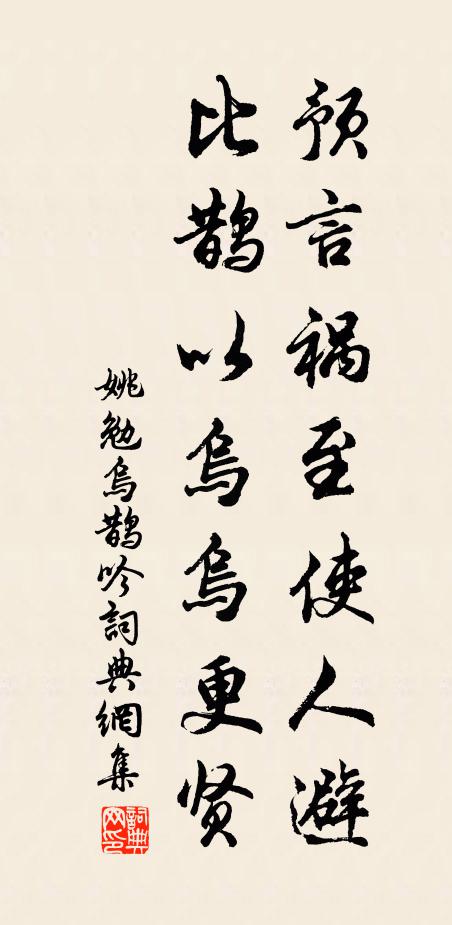 预言祸至使人避
比鹊以乌乌更贤
姚勉乌鹊吟詞典網集
詞典
网印